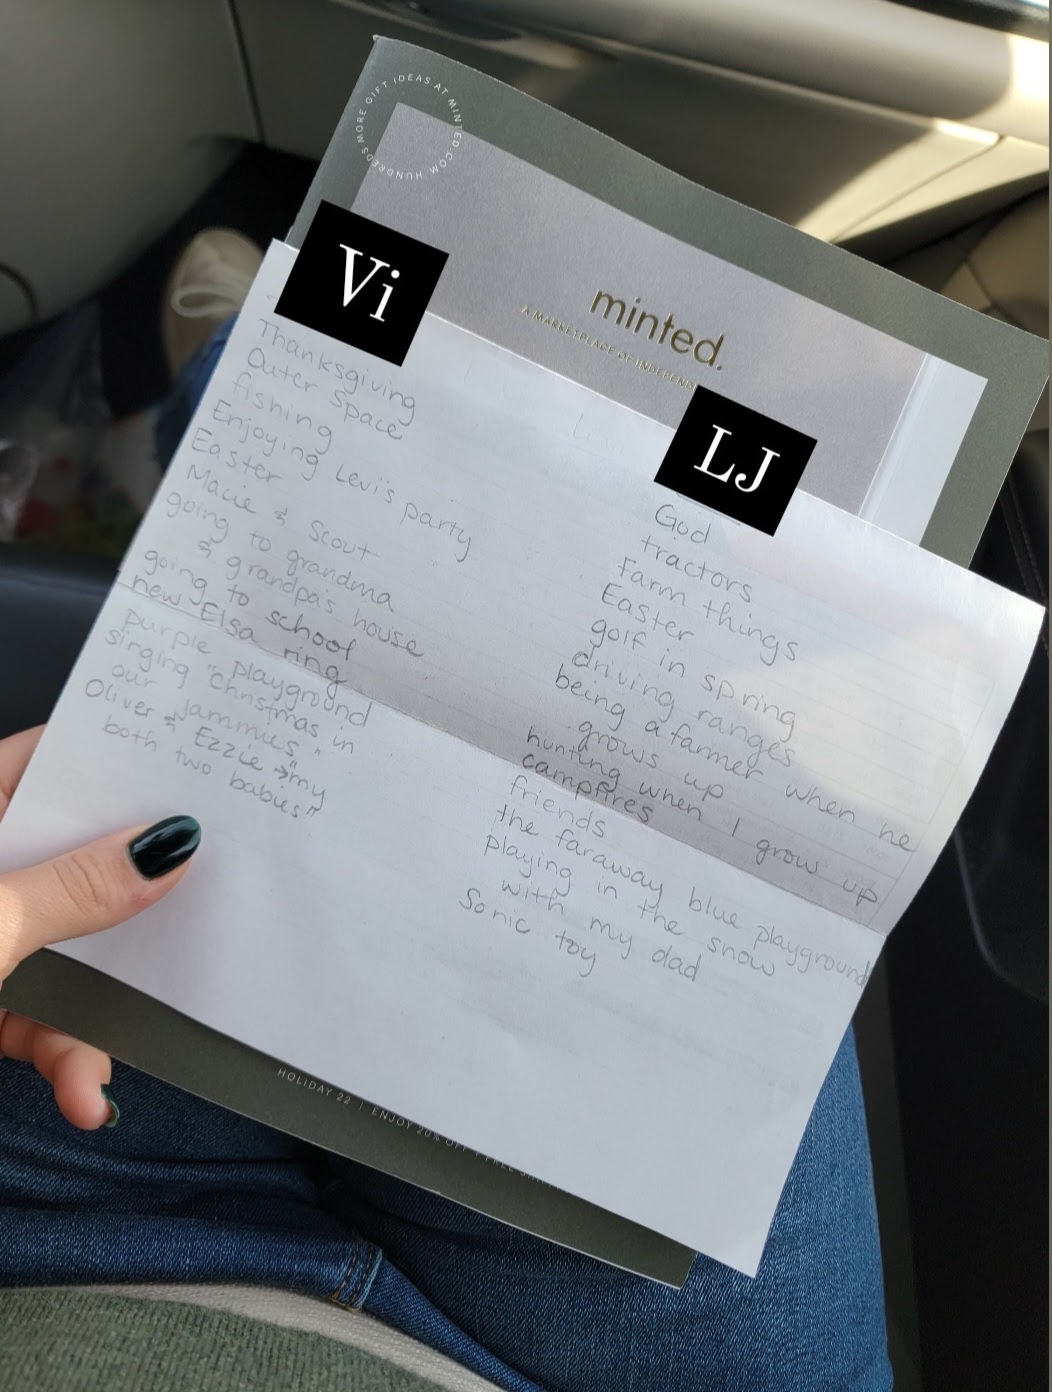 HUNDREDS MORE GIFT IDEAS AT MINTED.COM
minted.
A MARKETPLACE OF INDEPEND
Vi
Thanksgiving
Outer Space
fishing
Enjoying Levi's party
Easter
Macie & Scout
going to grandma
& grandpa's house
going to school
new Elsa ring
purple playground
singing "Christmas in
our Jammies"
Oliver & Ezzie → "my
both two babies"
LJ
God
tractors
Farm things
Easter
golf in spring
driving ranges
being a farmer when he
grows up
hunting when I grow up
campfires
friends
the faraway blue playground
playing in the snow
with my dad
Sonic toy
HOLIDAY 22 | ENJOY 20% OFF + FREE